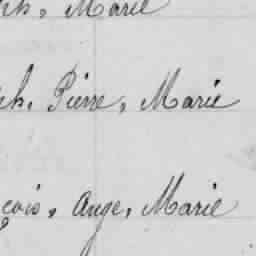 ph, Marie
ph, Pierre, Marie
çois, Ange, Marie